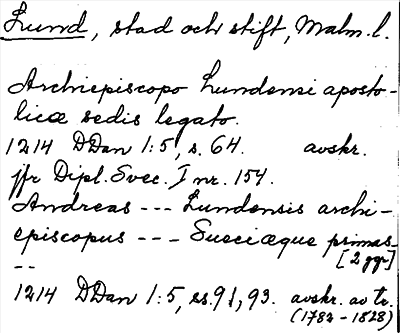 Lund, stad och stift, Malm. l.
Archiepiscopo Lundensi aposto-
licæ sedis legato.
1214 DDan 1:5, s. 64. avskr.
jfr Dipl. Svec. I nr. 154.
Andreas --- Lundensis archi-
episcopus --- Sueciæque primas
[2 ggr]
--
1214 DDan 1:5, ss. 91, 93. avskr. av tr.
(1782-1828)